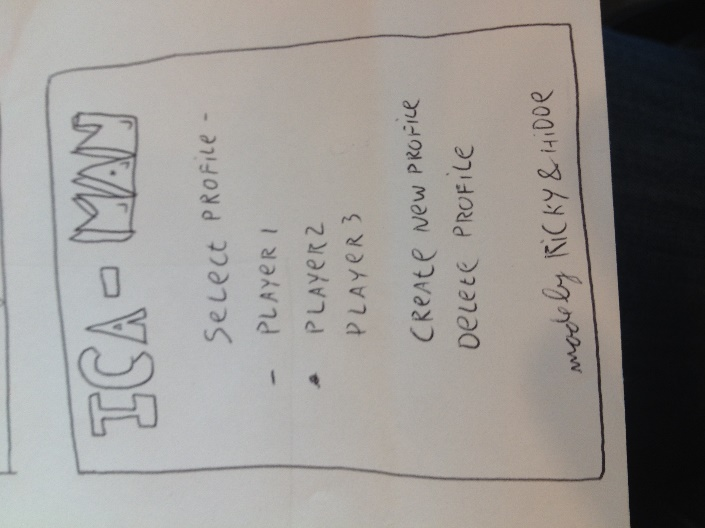 ICA - MAN
SELECT PROFILE -
- PLAYER 1
• PLAYER 2
PLAYER 3
CREATE NEW PROFILE
DELETE PROFILE
made by RICKY & HIDDE